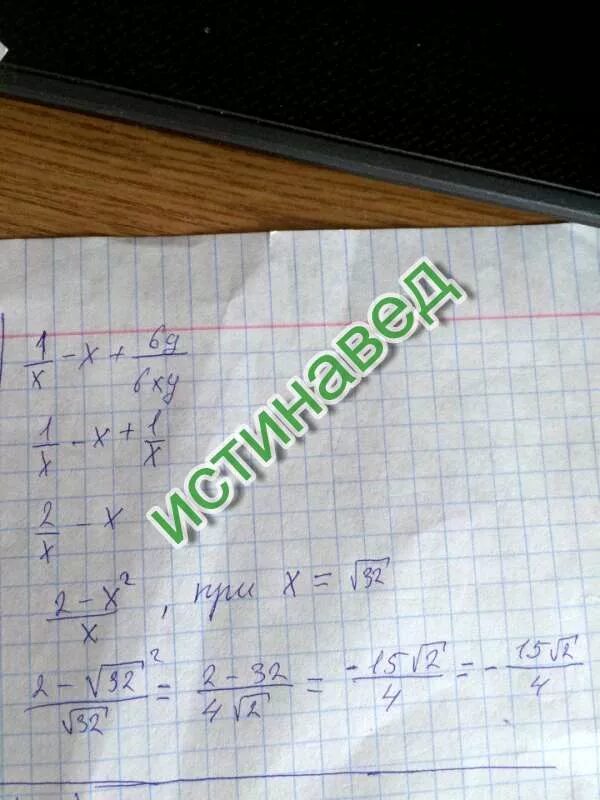 1/x - x + 6y/6xy
1/x - x + 1/x
2/x - x
2 - x²/x , при x = √32
2 - √32²/√32 = 2 - 32/4√2 = -15√2/4 = - 15√2/4
истинавед